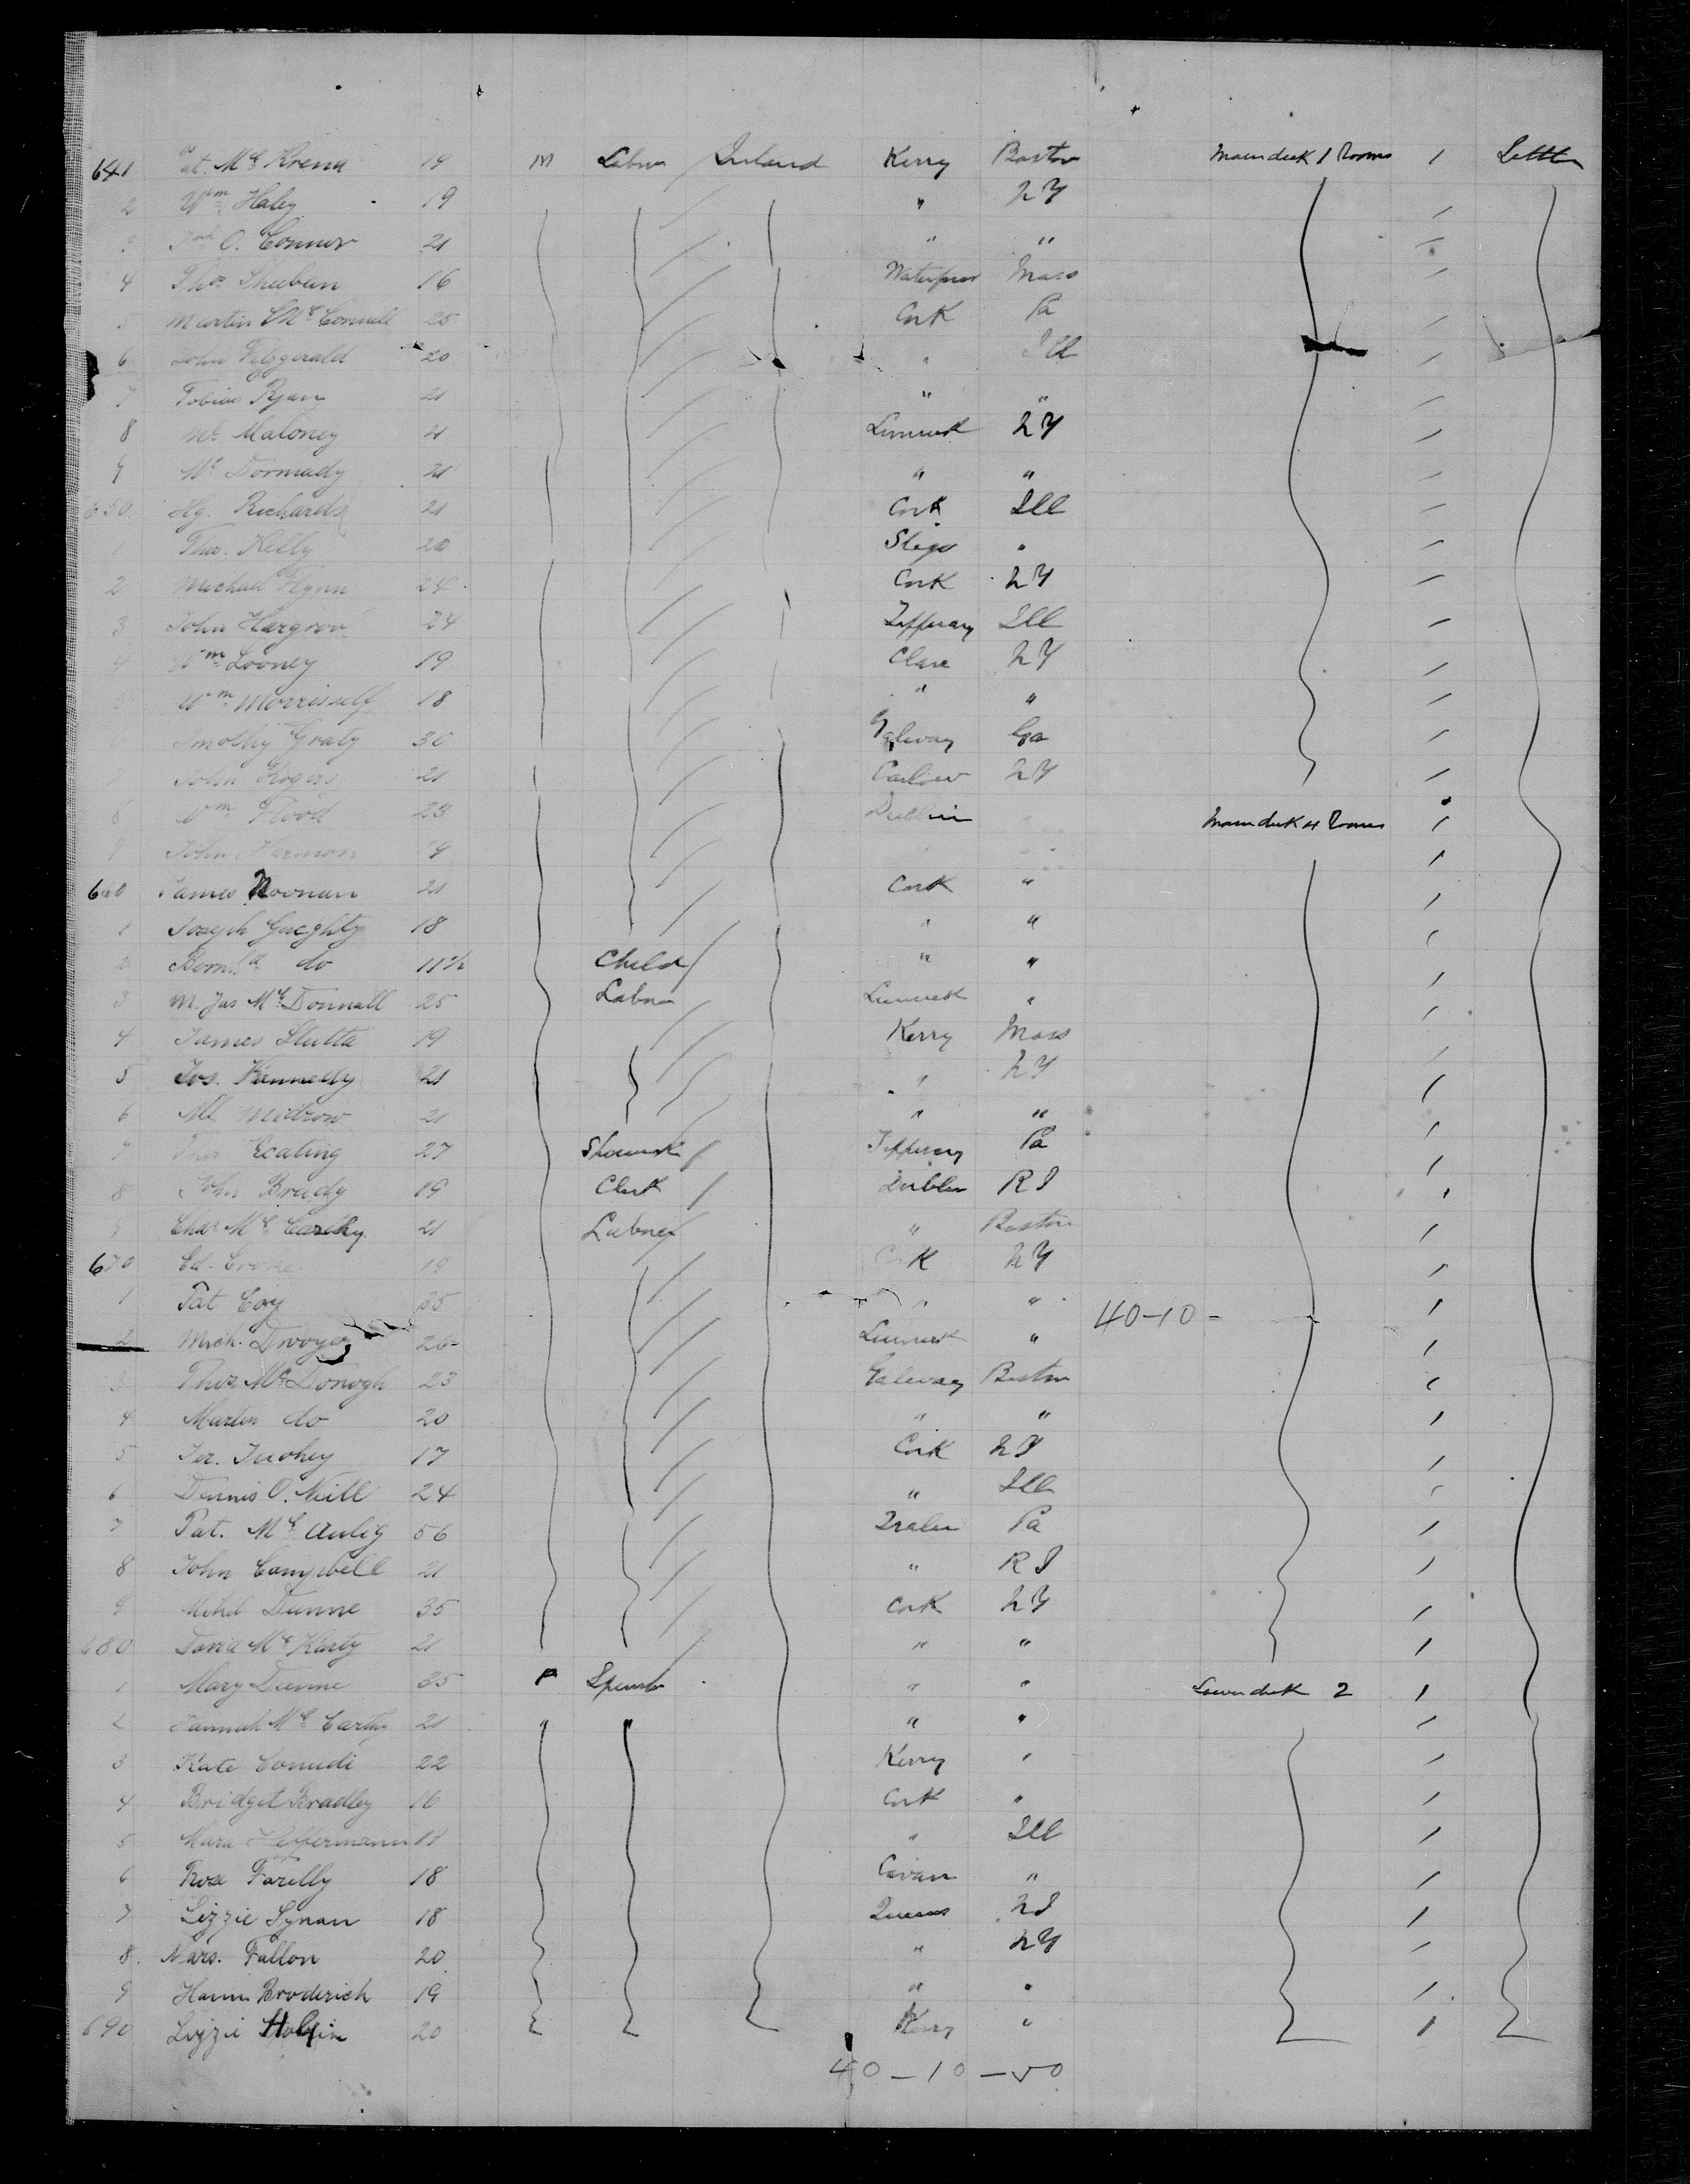 641 Pat. Mc Krena 19 M Labor Ireland Kerry Boston Maindeck 1 Rooms 1 Settler
2 Wm Haley 19 " NY /
3 O. Connor 21 " " /
4 Thos Sheehan 16 Waterford Mass /
5 Martin Mc Connell 25 Cork Pa /
6 John Fitzgerald 20 " Ill /
7 Tobias Ryan 21 " " /
8 Maloney 21 Limerick NY /
9 Dormady 21 " " /
650 Hy. Richards 21 Cork Ill /
1 Thos. Kelly 20 Sligo " /
2 Michael Flynn 24 Cork NY /
3 John Hargrov 24 Tipperary Ill /
4 Wm Looney 19 Clare NY /
5 Wm Morrisself 18 " " /
6 Timothy Graty 30 Galway Ga /
7 John Rogers 21 Carlow NY /
8 Wm Flood 23 Dublin " Maindeck 4 Rooms /
9 John Harmon 19 " " /
660 James Noonan 21 Cork " /
1 Joseph Gaeghty 18 " " /
2 Bern.d do 11 1/2 Child " " /
3 M. Jas Mc Donnall 25 Labor Limerick " /
4 James Slutta 19 Kerry Mass /
5 Jos. Kennedy 21 " NY /
6 21 " " /
7 Thos Ecating 27 Tipperary Pa /
8 John Brady 19 Clerk Dublin R I /
9 Chas Mc Carthy 21 Labor " Boston /
670 Ed. 19 Cork NY /
1 Pat Coy 35 " " 40-10- /
2 Mich. Dwoyer 26 Limerick " /
3 Thos Mc Donogh 23 Galway Boston /
4 Martin do 20 " " /
5 Jer. Tuohey 17 Cork NY /
6 Dennis O. Neill 24 " Ill /
7 Pat. Mc Aulig 56 Tralee Pa /
8 John Campbell 21 " R I /
9 Michl Dunne 35 Cork NY /
680 David Mc Karty 21 " " /
1 Mary Dunne 35 F Spinster " " Lowerdeck 2 1
2 Hannah Mc Carthy 21 " " " " /
3 Kate Conudi 22 Kerry " /
4 Bridget Bradley 16 Cork " /
5 Mara Heffermann " Ill /
6 Rose Farelly 18 Cavan " /
7 Lizzie Synan 18 Queens NJ /
8. Mars. Fallon 20 " NY /
9 Hann. Broderick 19 " " /
690 Lizzie 20 Kerry " /
40-10-50